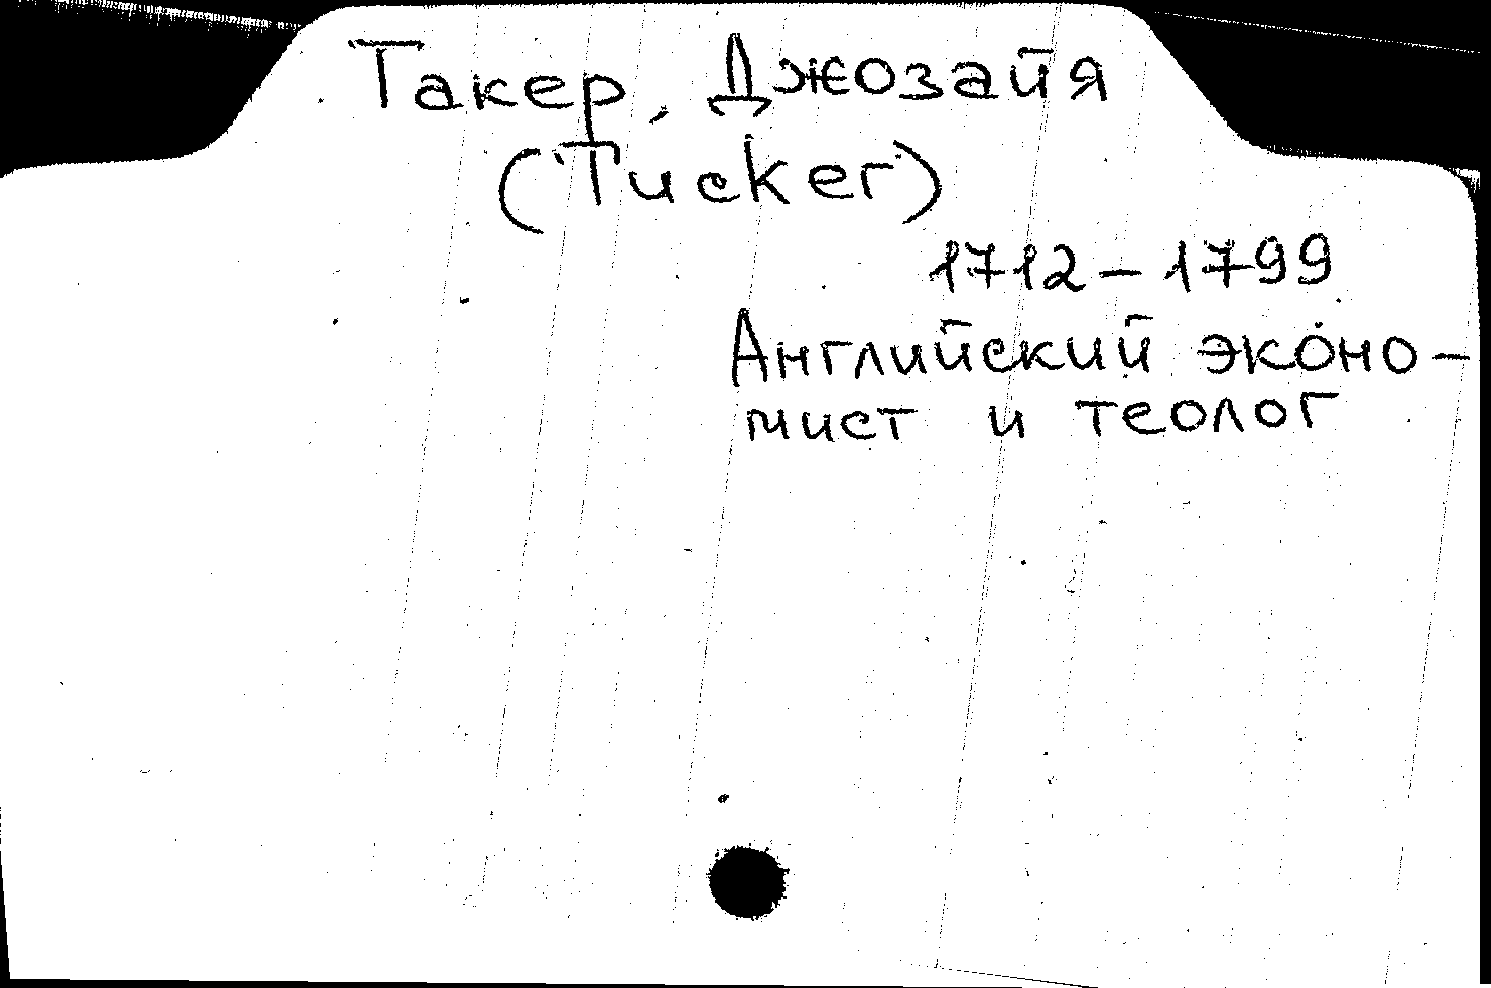 Такер, Джозайя
(Tucker)
1712 – 1799
Английский эконо-
мист и теолог